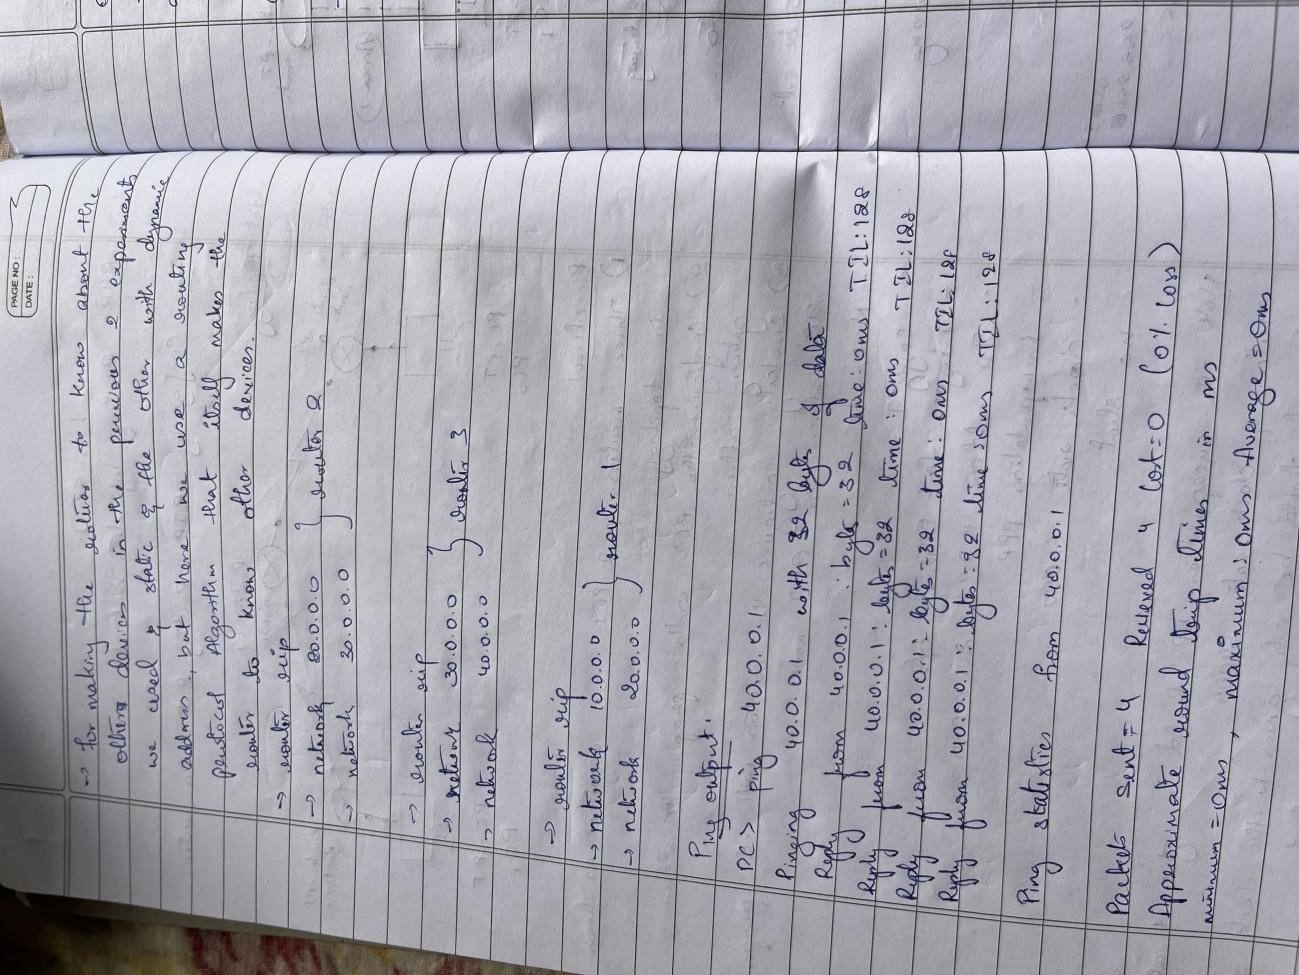 PAGE NO:
DATE:
→ for making the routers to know about the
others devices in the pervious 2 experiments
we used static & the other with dynamic
address, but here we use a routing
protocol Algorithm that itself makes the
router to know other devices.
→ router rip
→ network 20.0.0.0 } router 2
→ network 30.0.0.0
→ router rip
→ network 30.0.0.0 } router 3
→ network 40.0.0.0
→ router rip
→ network 10.0.0.0 } router 1
→ network 20.0.0.0
Ping output.
PC> ping 40.0.0.1
Pinging 40.0.0.1 with 32 bytes of data
Reply from 40.0.0.1 : byte = 32 time: 0ms TTL: 128
Reply from 40.0.0.1 : bytes = 32 time : 0ms TTL: 128
Reply from 40.0.0.1 : bytes = 32 time : 0ms TTL: 128
Reply from 40.0.0.1 : bytes = 32 time : 0ms TTL: 128
Ping statistics from 40.0.0.1
Packets sent = 4 Recieved 4 Lost = 0 (0% Loss)
Approximate round trip times in ms
minimum = 0ms, maximum : 0ms Average = 0ms